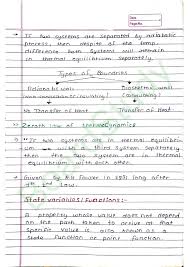 Date
Page No.
→ If two systems are separated by adiabatic
process, then despite of the temp.
difference both systems will remain
in thermal equilibrium separately.
Types of Boundaries
Adiabatic wall Diathermal wall
(Insulating) (Conducting)
No Transfer of Heat Transfer of Heat
→ Zeroth Law of Thermodynamics
→ "If two systems are in thermal equilibrium
with a third system separately
then the two system are in thermal
equilibrium with each other.
→ Given by Fowler in 1931 long after
1st and 2nd Law.
State variables / Functions :-
A property whose value does not depend
on the path taken to arrive at that
specific value is also known as a
State Function or point function.